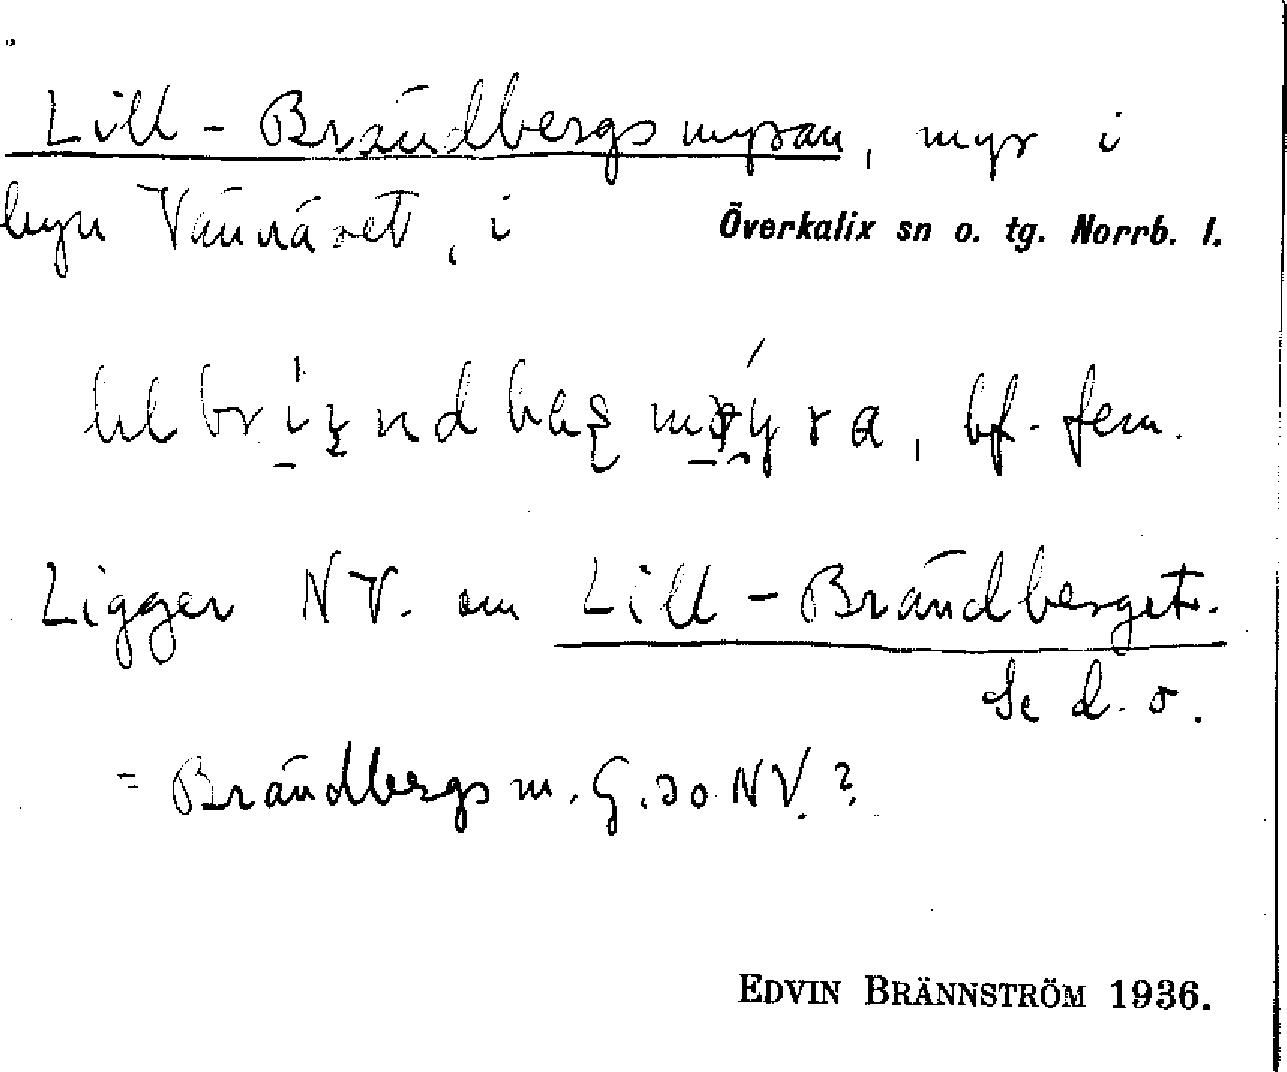 Lill-Brändbergsmyran, myr i
byn Vännäset, i Överkalix sn o. tg. Norrb. l.
bf. fem.
Ligger NV. om Lill-Brändberget.
Se d. o.
= Brändbergsm. G. 30 NV. ?
EDVIN BRÄNNSTRÖM 1936.